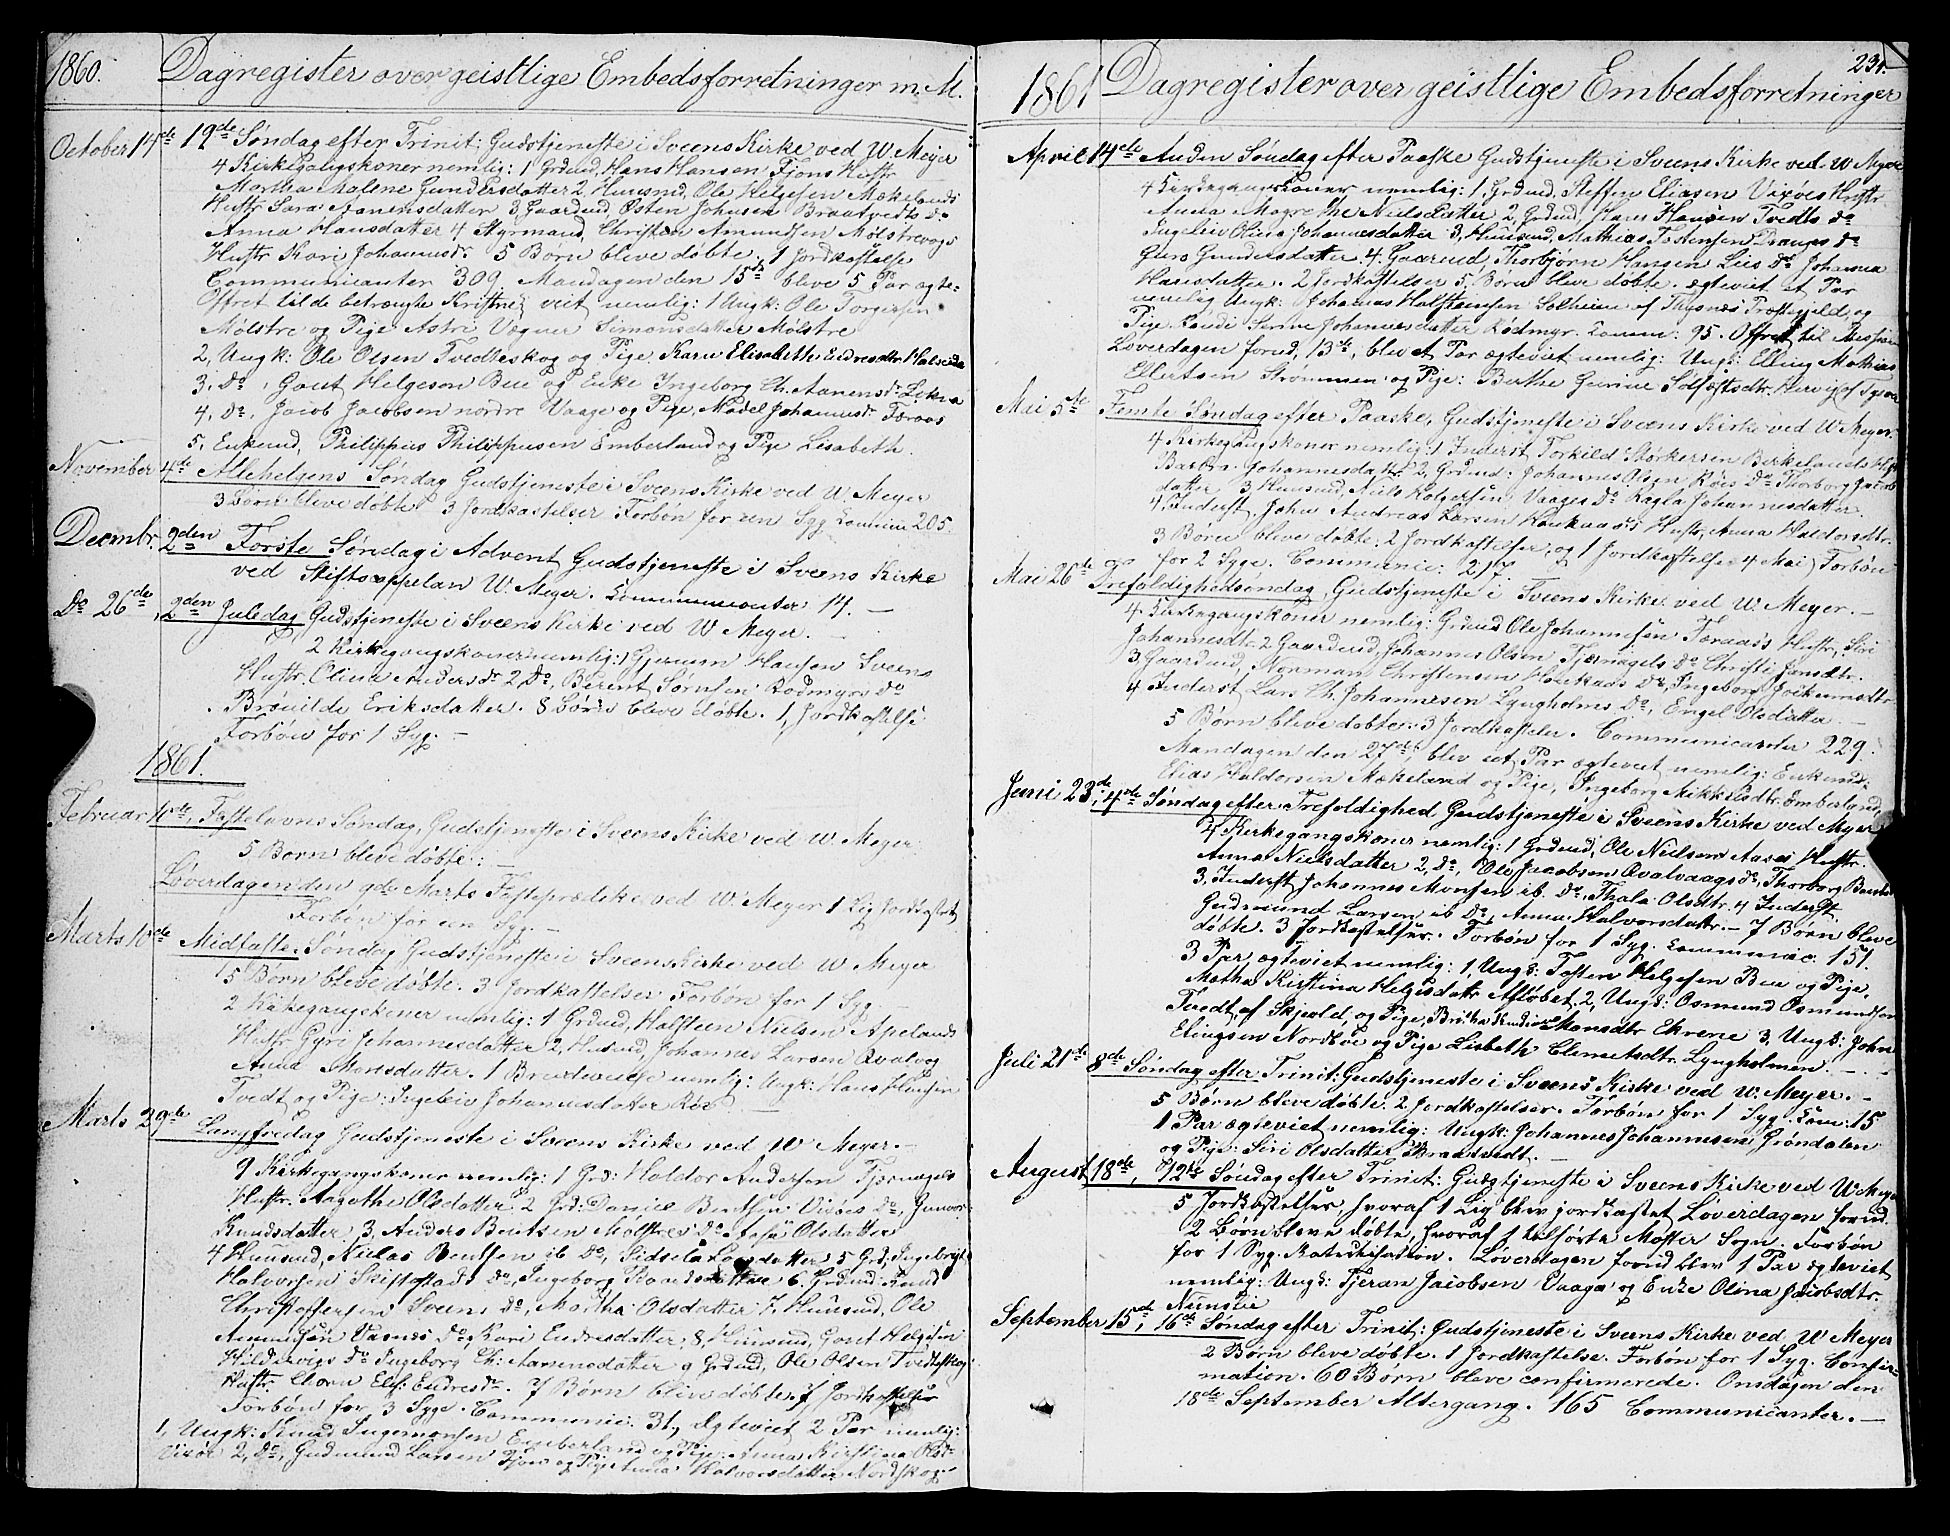 1860. Dagregister over geistlige Embedsforretninger m. M.
October 14de 19de Søndag efter Trinit: Gudstjeneste i Sveens Kirke ved W Meyer
4 Kirkegangskoner nemlig: 1 Grdmd, Hans Hansen Fjons Hustr
Martha Malene Gundersdatter 2, Huusmd, Ole Helgesen Mækelands
Hustr Sara Aanensdatter 3, Gaardmd, Østen Johnsen Braatvedts do
Anna Hansdatter 4 Styrmand, Christen Amundsen Mølstrevogs
Hustr Kari Johannesdr 5 Børn bleve døbte. 1 Jordkastelse
Communicanter 309. Mandagen den 15de bleve 5 Par ægte-
Offret til de betrængte Kristne viet nemlig: 1 Ungk: Ole Torgersen
Mølstre og Pige Astri Vegner Simonsdatter Mølstre
2, Ungk: Ole Olsen Tvedteskog og Pige Karn Elisabeth Endresdtr
3, do, Gout Helgeson Bue og Enke Ingeborg Ch. Aanensdr Lekna
4, do, Jacob Jacobsen nordre Vaage og Pige Madel Johannesdr Færaas
5, Enkemd, Philippus Philippusen Emberland og Pige Lisabeth.
November 4de Allehelgens Søndag Gudstjeneste i Sveens Kirke ved W. Meyer
3 Børn bleve døbte 3 Jordkastelser Forbøn for en Syg Commun 205.
Decembr. 2den Første Søndag i Advent Gudstjeneste i Sveens Kirke
ved Stiftscappelan W. Meyer. Communicanter 14. —
Do 26de, 2den Juledag Gudstjeneste i Sveens Kirke ved W Meyer. —
2 Kirkegangskoner nemlig: 1 Gjermun Hansen Sveens
Hustr. Olina Andersdr 2 Do, Berent Sørnsen Rodmyrs do
Brønilde Eriksdatter. 8 Børn bleve døbte. 1, Jordkastelse
Forbøn for 1 Syg. —
1861.
Februar 10de, Fastelavns Søndag, Gudstjeneste i Sveens Kirke ved W. Meyer
5 Børn bleve døbte: —
Løverdagen den 9de Marts Fasteprædiken ved W. Meyer 1 Lig Jordkastet
Forbøn for en Syg. —
Marts 10de Midfaste Søndag Gudstjeneste i Sveens Kirke ved W Meyer
5 Børn bleve døbte. 3 Jordkastelser Forbøn for 1 Syg. —
2 Kirkegangskoner nemlig: 1 Grdmd, Halsteen Nielsen Apelands
Hustr Gyri Johannesdatter 2, Husmd, Johannes Larsen Qvalvog
Anna Monsdatter. 1 Brudevielse nemlig: Ungk: Hans Hansen
Tvedt og Pige: Ingeleiv Johannesdatter Røe —
Marts 29de Langfredag Gudstjeneste i Sveens Kirke ved W Meyer. —
9 Kirkegangskoner nemlig: 1 Grd: Haldor Andersen Tjernagels
Hustr. Aagethe Olsdatter 2 Grd: Daniel Bentsen Vixøes Do, Gunvor
Knudsdatter 3, Anders Bentsen Mølstres do Olsdatter
4 Huusmd, Niclas Bentsen ib Do, Sidsela Larsdatter 5 Grd, Ingebrigt
Halvorsen Skistads do, Ingeborg Baardsdatter 6. Grdmd: Knud
Christoffersen Sveens do, Martha Olsdatter 7, Huusmd, Ole
Amundsen Vasnes do, Kari Endresdatter, 8, Huusmd, Gout Helgesen
Hildervigs do Ingeborg Ch: Aanensdatter 9 Grdmd, Ole Olsen Tvedteskog
Hustr. Charn Elis: Endresdr. 7 Børn bleve døbte. 7 Jordkastelser
Forbøn for 3 Syge. Communic: 31, Ægteviet 2 Par nemlig:
1, Ungk: Knud Ingemonsen Emberland og Pige: Anna Kirstina Olsdr
Vixøe 2, Do, Gudmund Larsen Fjon og Pige Anna Halvorsdatter Nordskog —
231.
1861 Dagregister over geistlige Embedsforretninger
April 14de Anden Søndag efter Paaske Gudstjeneste i Sveens Kirke ved W Meyer
4 Kirkegangskoner nemlig: 1, Grdmd, Steffen Eliasen Vixøes Hustr
Anna Magrethe Nielsdatter 2, Grdmd, Hans Hansen Tvedts do
Ingeleiv Olina Johannesdatter 3, Huusmd, Mathias Tostensen Draages do
Guro Gundersdatter. 4. Gaardmd Thorbjørn Hansen Lies do Johanna
Hansdatter. 2 Jordkastelser 5, Børn bleve døbte. ægteviet et Par
nemlig Ungk: Johannes Halstensen Solheim af Thysnæs Præstegjeld, og
Pige Randi Serine Johannesdatter Rødmyr. Comm: 95. Offret til Mission
Løverdagen forud, 13de, blev et Par ægteviet nemlig: Ungk: Elling Mathias
Ellertsen Strømmen og Pige: Berthe Gurine Solfæstsdtr. Hervig af Tysvær
Mai 5te Femte Søndag efter Paaske, Gudstjeneste i Sveens Kirke ved W Meyer.
4 Kirkegangskoner nemlig: 1 Inderst Torkild Størkersen Birkelands Hustr
Barbra Johannesdatter 2, Grdmd: Johannes Olsen Røes Do Thorborg Jacob
datter 3 Huusmd, Niels Holgersen Vaages do Ragla Johannesdatter
4, Inderst John Andreas Larsen Haukaas's Hustr, Anna Haldorsdtr.
3 Børn bleve døbte: 2 Jordkastelser, og 1 Jordkastelse 4 Mai, Forbøn
for 2 Syge. Communic: 217
Mai 26de Trefoldighedsøndag, Gudstjeneste i Sveens Kirke ved W. Meyer. —
4 Kirkegangskoner nemlig: Grdmd Ole Johannesen Færaas's Hustr, Siri
Johannesdtr. 2 Gaardmd, Johannes Olsen Tjernagels do Christi Jansdtr.
3, Gaardmd, Norman Christensen Haukaas Do, Ingeborg Jockumsdtr
4 Inderst Lars Ch. Johannesen Lyngholmes Do, Engel Olsdatter —
5 Børn bleve døbte. 3 Jordkasteler. Communicanter 229.
Mandagen den 27de, blev eet Par ægteviet nemlig: Enkemd:
Elias Haldorsen Mækeland og Pige, Ingeborg Mikkelsdtr. Emberland,
Juni 23de, 4de Søndag efter Trefoldighed Gudstjeneste i Sveens Kirke ved Meyer
4 Kirkegangskoner nemlig: 1 Grdmd, Ole Nielsen Aases Hustr.
Anna Nielsdatter 2, do, Ole Jacobsen Qvalvaags do, Thorborg
3, Inderst, Johannes Monsen ib. do, Thala Olsdtr. 4 Inderst
Gudmund Larsen ib Do, Anna Halvorsdattr. — 7 Børn bleve
døbte. 3 Jordkastelser. Forbøn for 1 Syg. Communic. 151.
3 Par ægteviet nemlig: 1, Ungk: Tosten Helgesen Bue og Pige,
Matha Kirstina Helgesdatr Afløbet. 2, Ungk: Osmund Osmundsen
Tvedt, af Skjold, og Pige, Britha Monsdtr Ekrene 3, Ungk: John
Elingsen Nordbøe og Pige Lisbeth Clemetsdtr. Lyngholmen. — . —
Juli 21de 8de Søndag efter Trinit: Gudstjeneste i Sveens Kirke ved W. Meyer. —
5 Børn bleve døbte. 2 Jordkastelser. Forbøn for 1 Syg. Com: 15
1 Par ægteviet nemlig: Ungk: Johannes Johannesen, Grøndalen
og Pige: Siri Olsdatter Braadtvedt. —
August 18de, 12te Søndag efter Trinit: Gudstjeneste i Sveens Kirke ved W Meyer
5 Jordkastelser, hvoraf 1 Lig blev jordkastet Løverdagen forud.
2 Børn bleve døbte, hvoraf 1 tilhørte Moster Sogn. Forbøn
for 1 Syg. Katechisation. Løverdagen forud blev 1 Par ægteviet
nemlig: Ungk: Tjeran Jacobsen Vaage og Enke Olina Jacobsdtr.
September 15de, 16de Søndag efter Trinit: Gudstjeneste i Sveens Kirke ved W Meyer
2 Børn bleve døbte. 1 Jordkastelse. Forbøn for 1 Syg. Confir-
mation. 60 Børn bleve confirmerede. Onsdagen den
18de September Altergang. 165 Communicanter. —